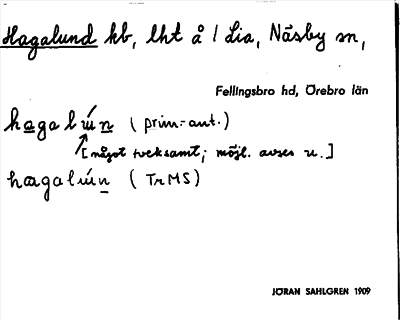 Hagalund kb, lht å / Lia, Näsby sn,
Fellingsbro hd, Örebro län
hagalún (prim.-ant.)
[något tveksamt; möjl. avses u.]
hagalún (TrMS)
JÖRAN SAHLGREN 1909